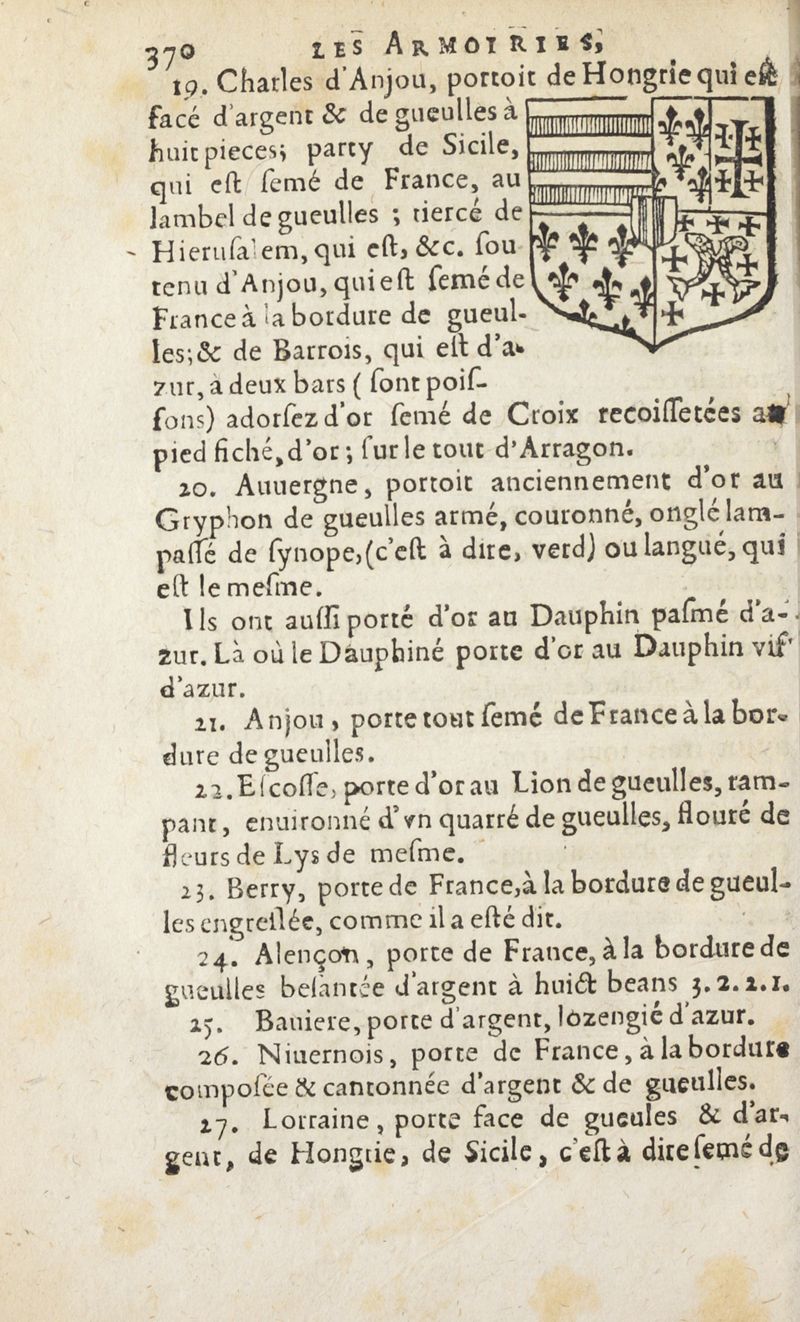 370 LES ARMOIRIES,
19. Charles d'Anjou, portoit de Hongrie qui eſt
facé d'argent & de gueulles à
huit pieces; party de Sicile,
qui eſt ſemé de France, au
lambel de gueulles ; tiercé de
Hieruſalem, qui eſt, &c. ſou
tenu d'Anjou, qui eſt ſemé de
France à la bordure de gueul-
les; & de Barrois, qui eſt d'a-
zur, à deux bars ( ſont poiſ-
ſons) adorſez d'or ſemé de Croix recoiſſetées au
pied fiché, d'or ; ſur le tout d'Arragon.
20. Auuergne, portoit anciennement d'or au
Gryphon de gueulles armé, couronné, onglé lam-
paſſé de ſynope, (c'eſt à dire, verd) ou langué, qui
eſt le meſme.
Ils ont auſſi porté d'or au Dauphin paſmé d'a-
zur. Là où le Dauphiné porte d'or au Dauphin vif
d'azur.
21. Anjou, porte tout ſemé de France à la bor-
dure de gueulles.
22. Eſcoſſe, porte d'or au Lion de gueulles, ram-
pant, enuironné d'vn quarré de gueulles, flouré de
fleurs de Lys de meſme.
23. Berry, porte de France, à la bordure de gueul-
les engreſlée, comme il a eſté dit.
24. Alençon, porte de France, à la bordure de
gueulles beſantée d'argent à huict beans 3.2.2.1.
25. Bauiere, porte d'argent, lozengié d'azur.
26. Niuernois, porte de France, à la bordure
compoſée & cantonnée d'argent & de gueulles.
27. Lorraine, porte face de gueules & d'ar-
gent, de Hongrie, de Sicile, c'eſt à dire ſemé de